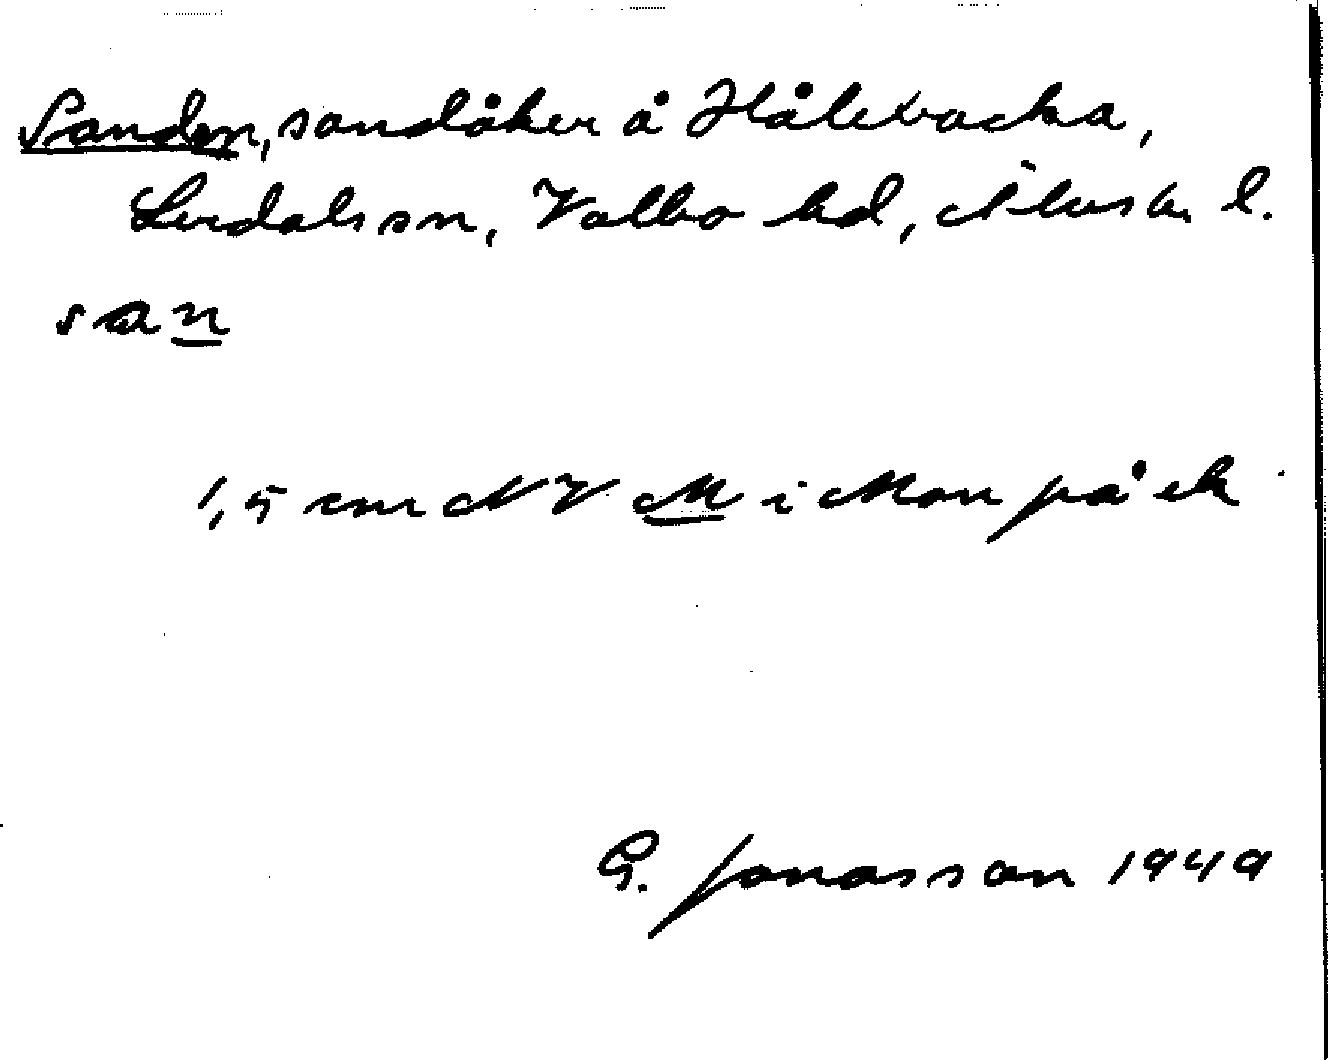 Sanden, sandåker å Hålebacka,
Lerdals sn, Valbo hd, Älvsb. l.
san
1,5 cm NV M i Mon på ek
G. Jonasson 1949